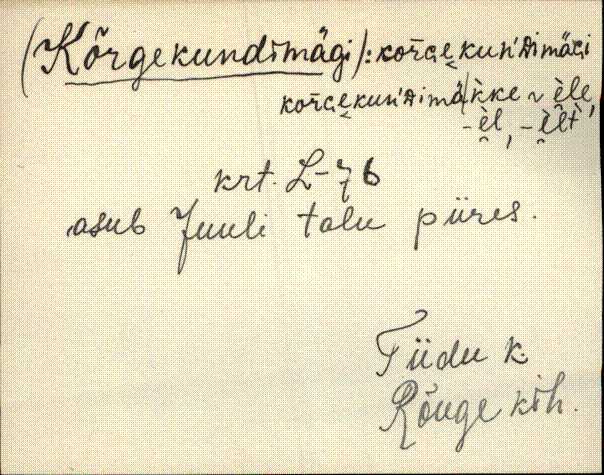 (Kõrgekundimägi): kōrGe̬kuńDimäGi
kōrGe̬kuńDimä|kke ~ èle,
-e̬l, -e̬lt
krt. L-76
asub Juuli talu piires.
Tiidu k.
Rõuge kih.